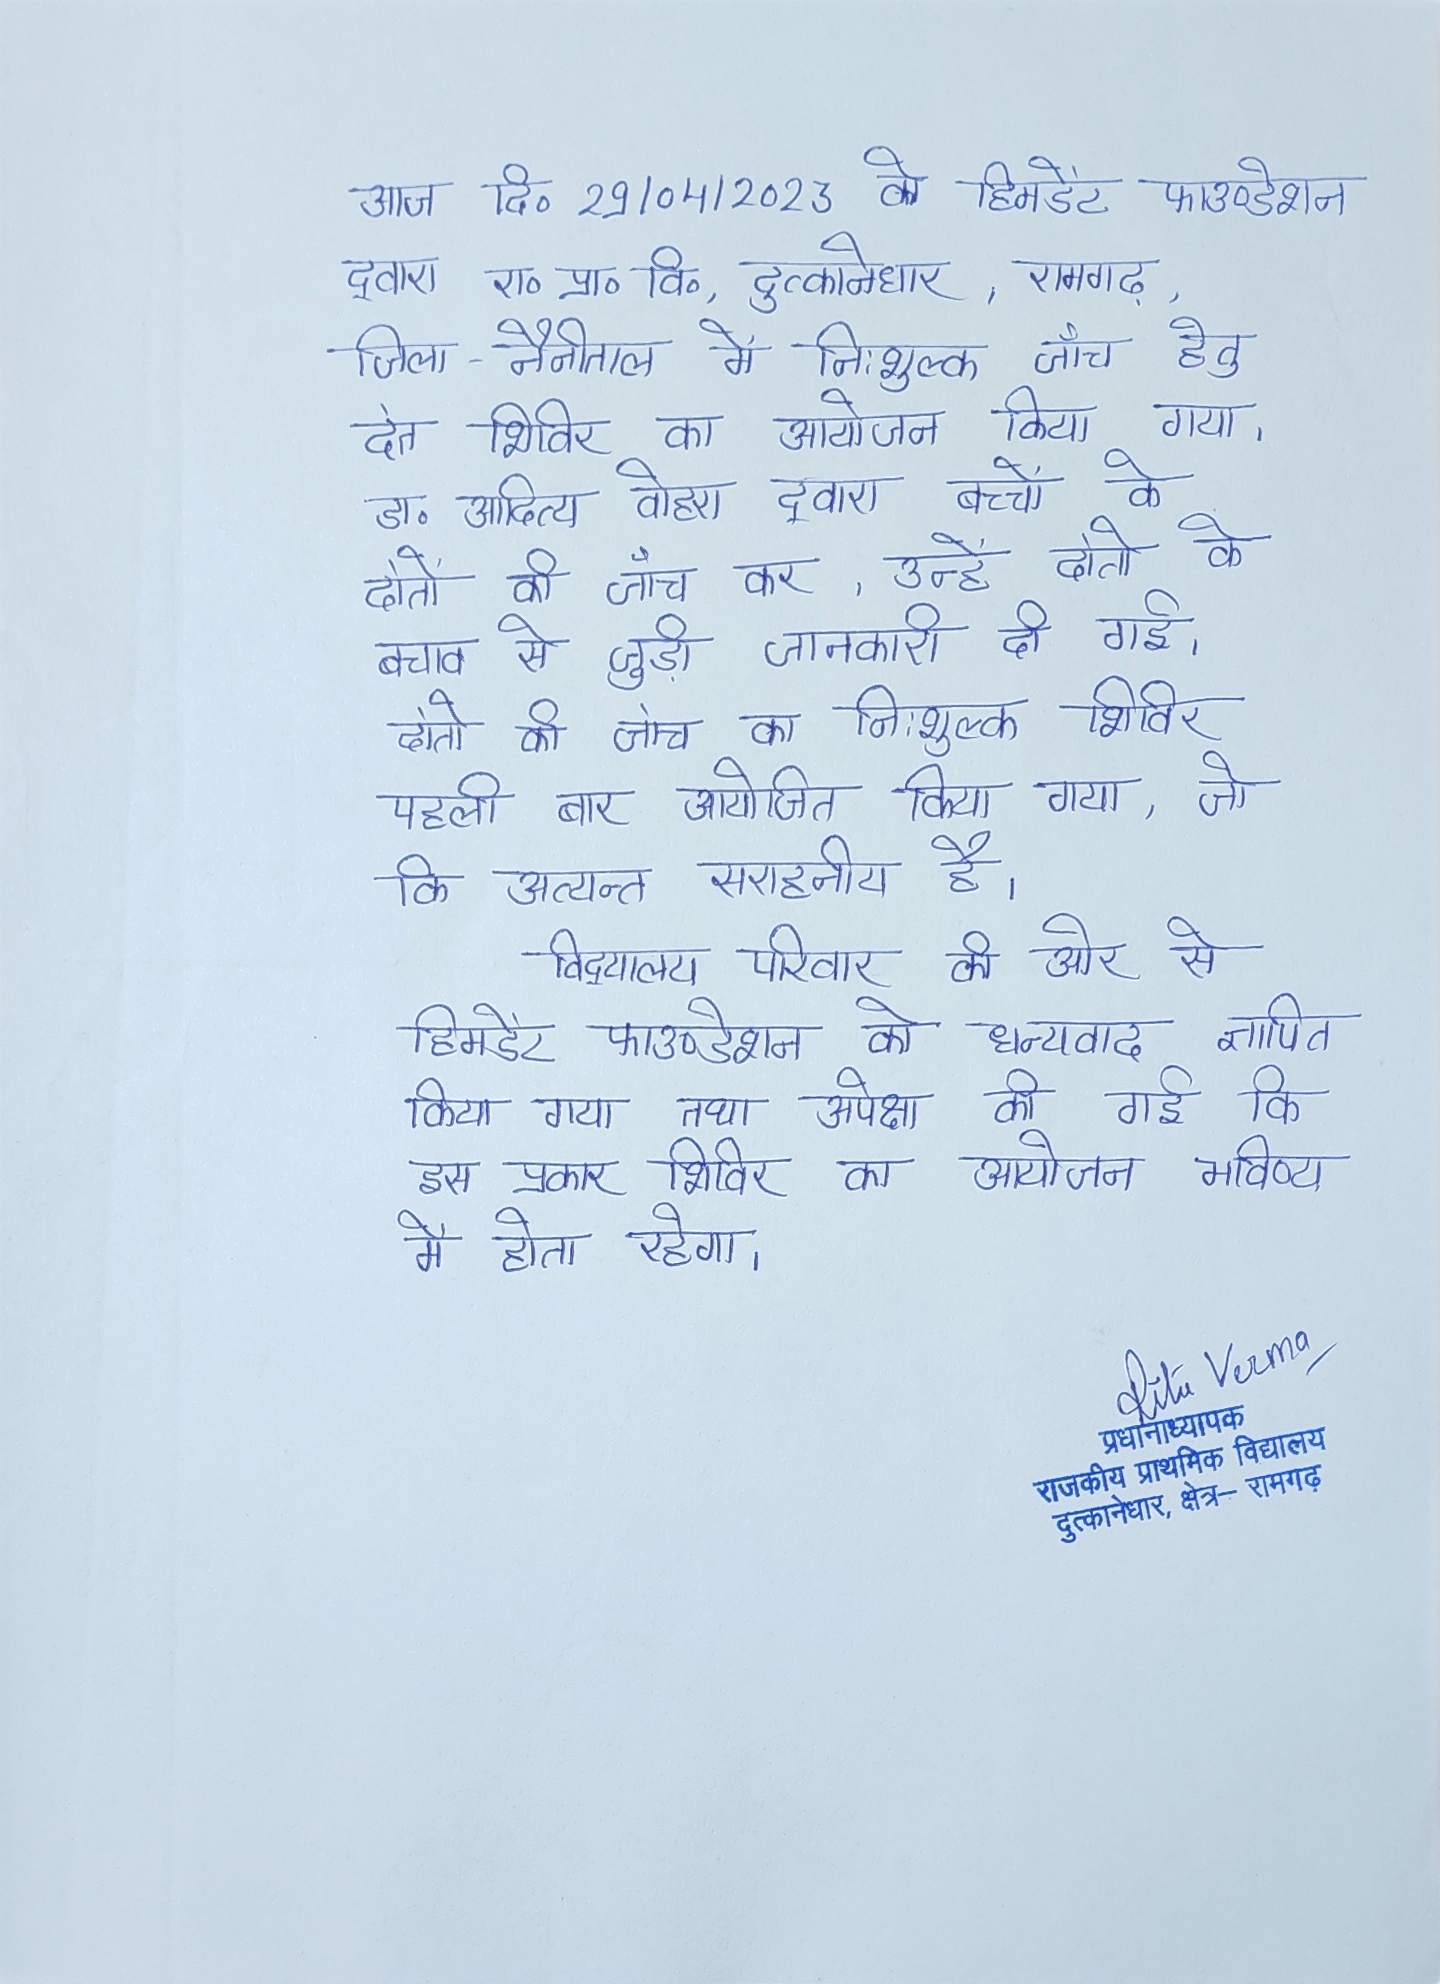 आज दि० 29/04/2023 को हिमडेंट फाउण्डेशन
द्वारा रा० प्रा० वि०, दुत्कानेधार, रामगढ़,
जिला - नैनीताल में निःशुल्क जाँच हेतु
दंत शिविर का आयोजन किया गया।
डा० आदित्य वोहरा द्वारा बच्चों के
दांतों की जाँच कर, उन्हें दांतो के
बचाव से जुड़ी जानकारी दी गई।
दांतो की जांच का निःशुल्क शिविर
पहली बार आयोजित किया गया, जो
कि अत्यन्त सराहनीय है।
विद्यालय परिवार की ओर से
हिमडेंट फाउण्डेशन को धन्यवाद ज्ञापित
किया गया तथा अपेक्षा की गई कि
इस प्रकार शिविर का आयोजन भविष्य
में होता रहेगा।
Ritu Verma
प्रधानाध्यापक
राजकीय प्राथमिक विद्यालय
दुत्कानेधार, क्षेत्र– रामगढ़